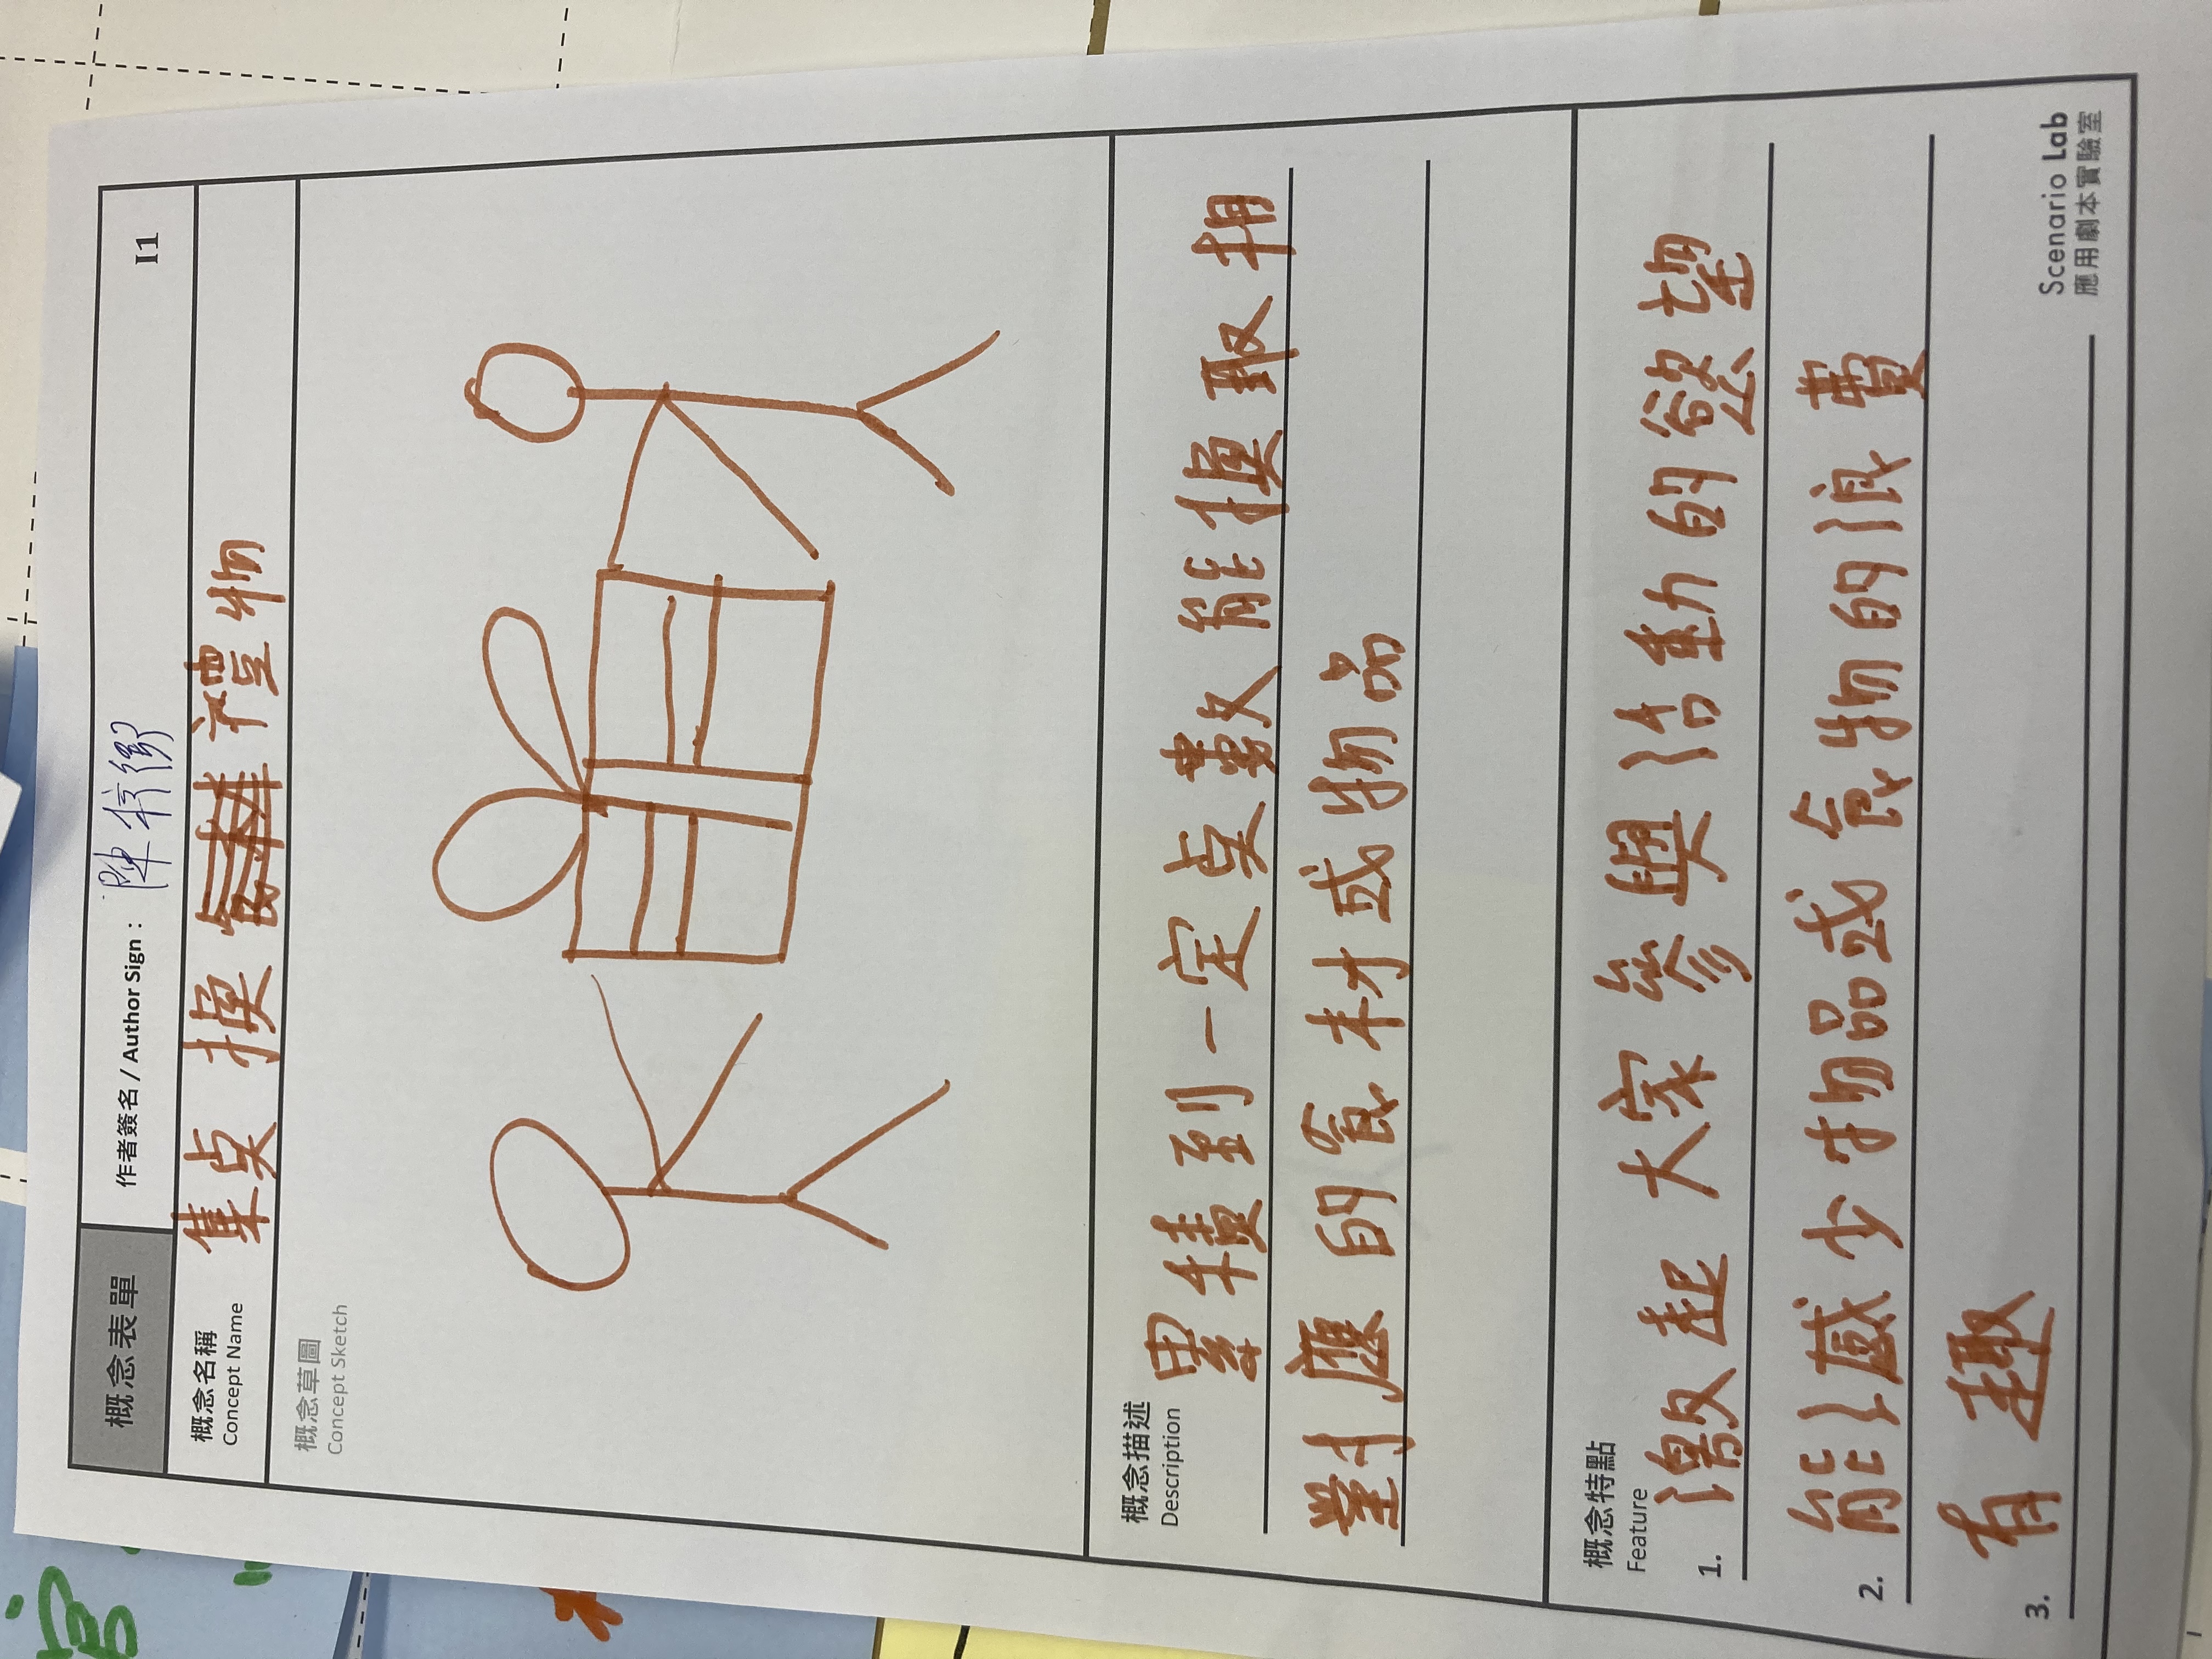 概念表單
作者簽名 / Author Sign：陳
I1
概念名稱
Concept Name
集点換禮物
概念草圖
Concept Sketch
概念描述
Description
累積到一定点數能換取相
對應的食材或物品
概念特點
Feature
1. 激起大家參與活動的慾望
2. 能減少物品或食物的浪費
3. 有趣
Scenario Lab
應用劇本實驗室